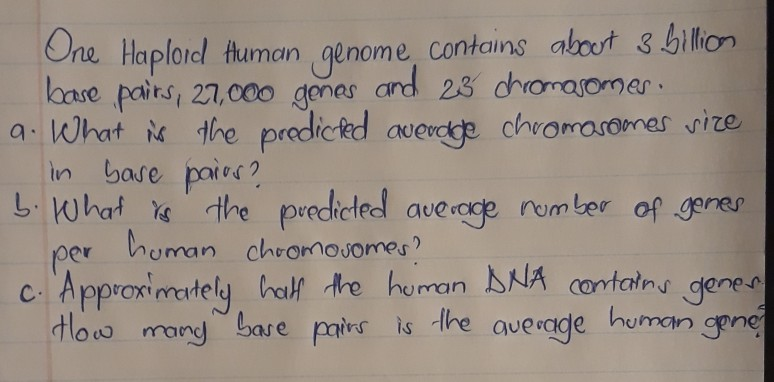 One Haploid Human genome contains about 3 billion
base pairs, 27,000 genes and 23 chromosomes.
a. What is the predicted average chromosomes size
in base pairs?
b. What is the predicted average number of genes
per human chromosomes?
c. Approximately half the human DNA contains genes.
How many base pairs is the average human gene?